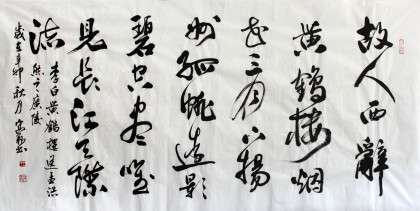 故人西辭
黄鶴楼烟
花三月下揚
州孤帆遠影
碧空尽唯
見長江天際
流
李白黄鶴樓送孟浩
然之廣陵
歲在辛卯秋月